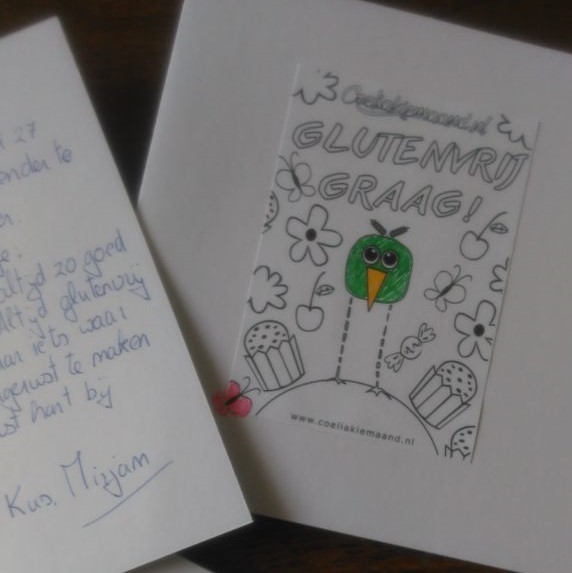 27
onder te
altijd zo goed
Altijd glutenvrij
iets waar
te maken
hart bij
Kus, Mirjam
Coeliakiemaand.nl
GLUTENVRIJ
GRAAG!
www.coeliakiemaand.nl